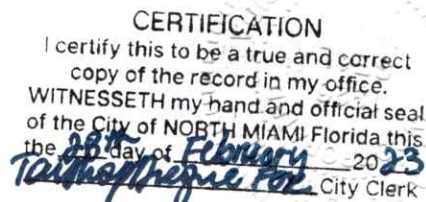 CERTIFICATION
I certify this to be a true and correct
copy of the record in my office.
WITNESSETH my hand and official seal
of the City of NORTH MIAMI Florida this
the 28th day of February 2023
City Clerk